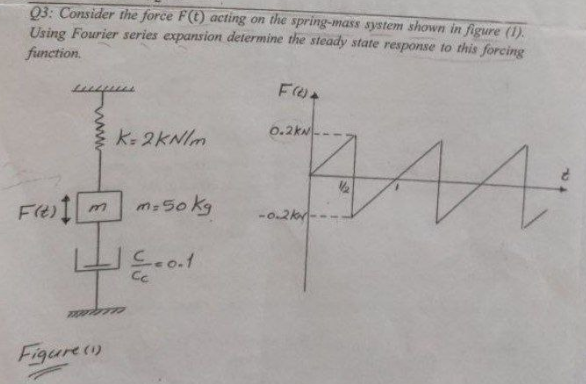 Q3: Consider the force F(t) acting on the spring-mass system shown in figure (1).
Using Fourier series expansion determine the steady state response to this forcing
function.
F(t)
0.2kN
K=2KN/m
t
1/2
1
F(t)
m
m=50kg
-0.2kN
C/Cc=0.1
Figure (1)